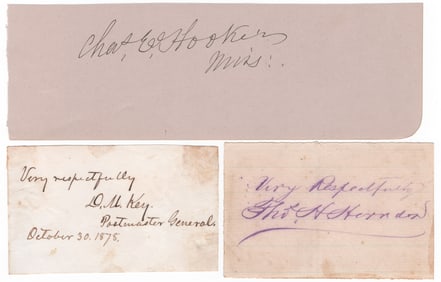 Chas, E, Hooker
Miss:.
Very respectfully
D. M. Key.
Postmaster General.
October 30. 1878.
Very Respectfully
Tho. H Herndon